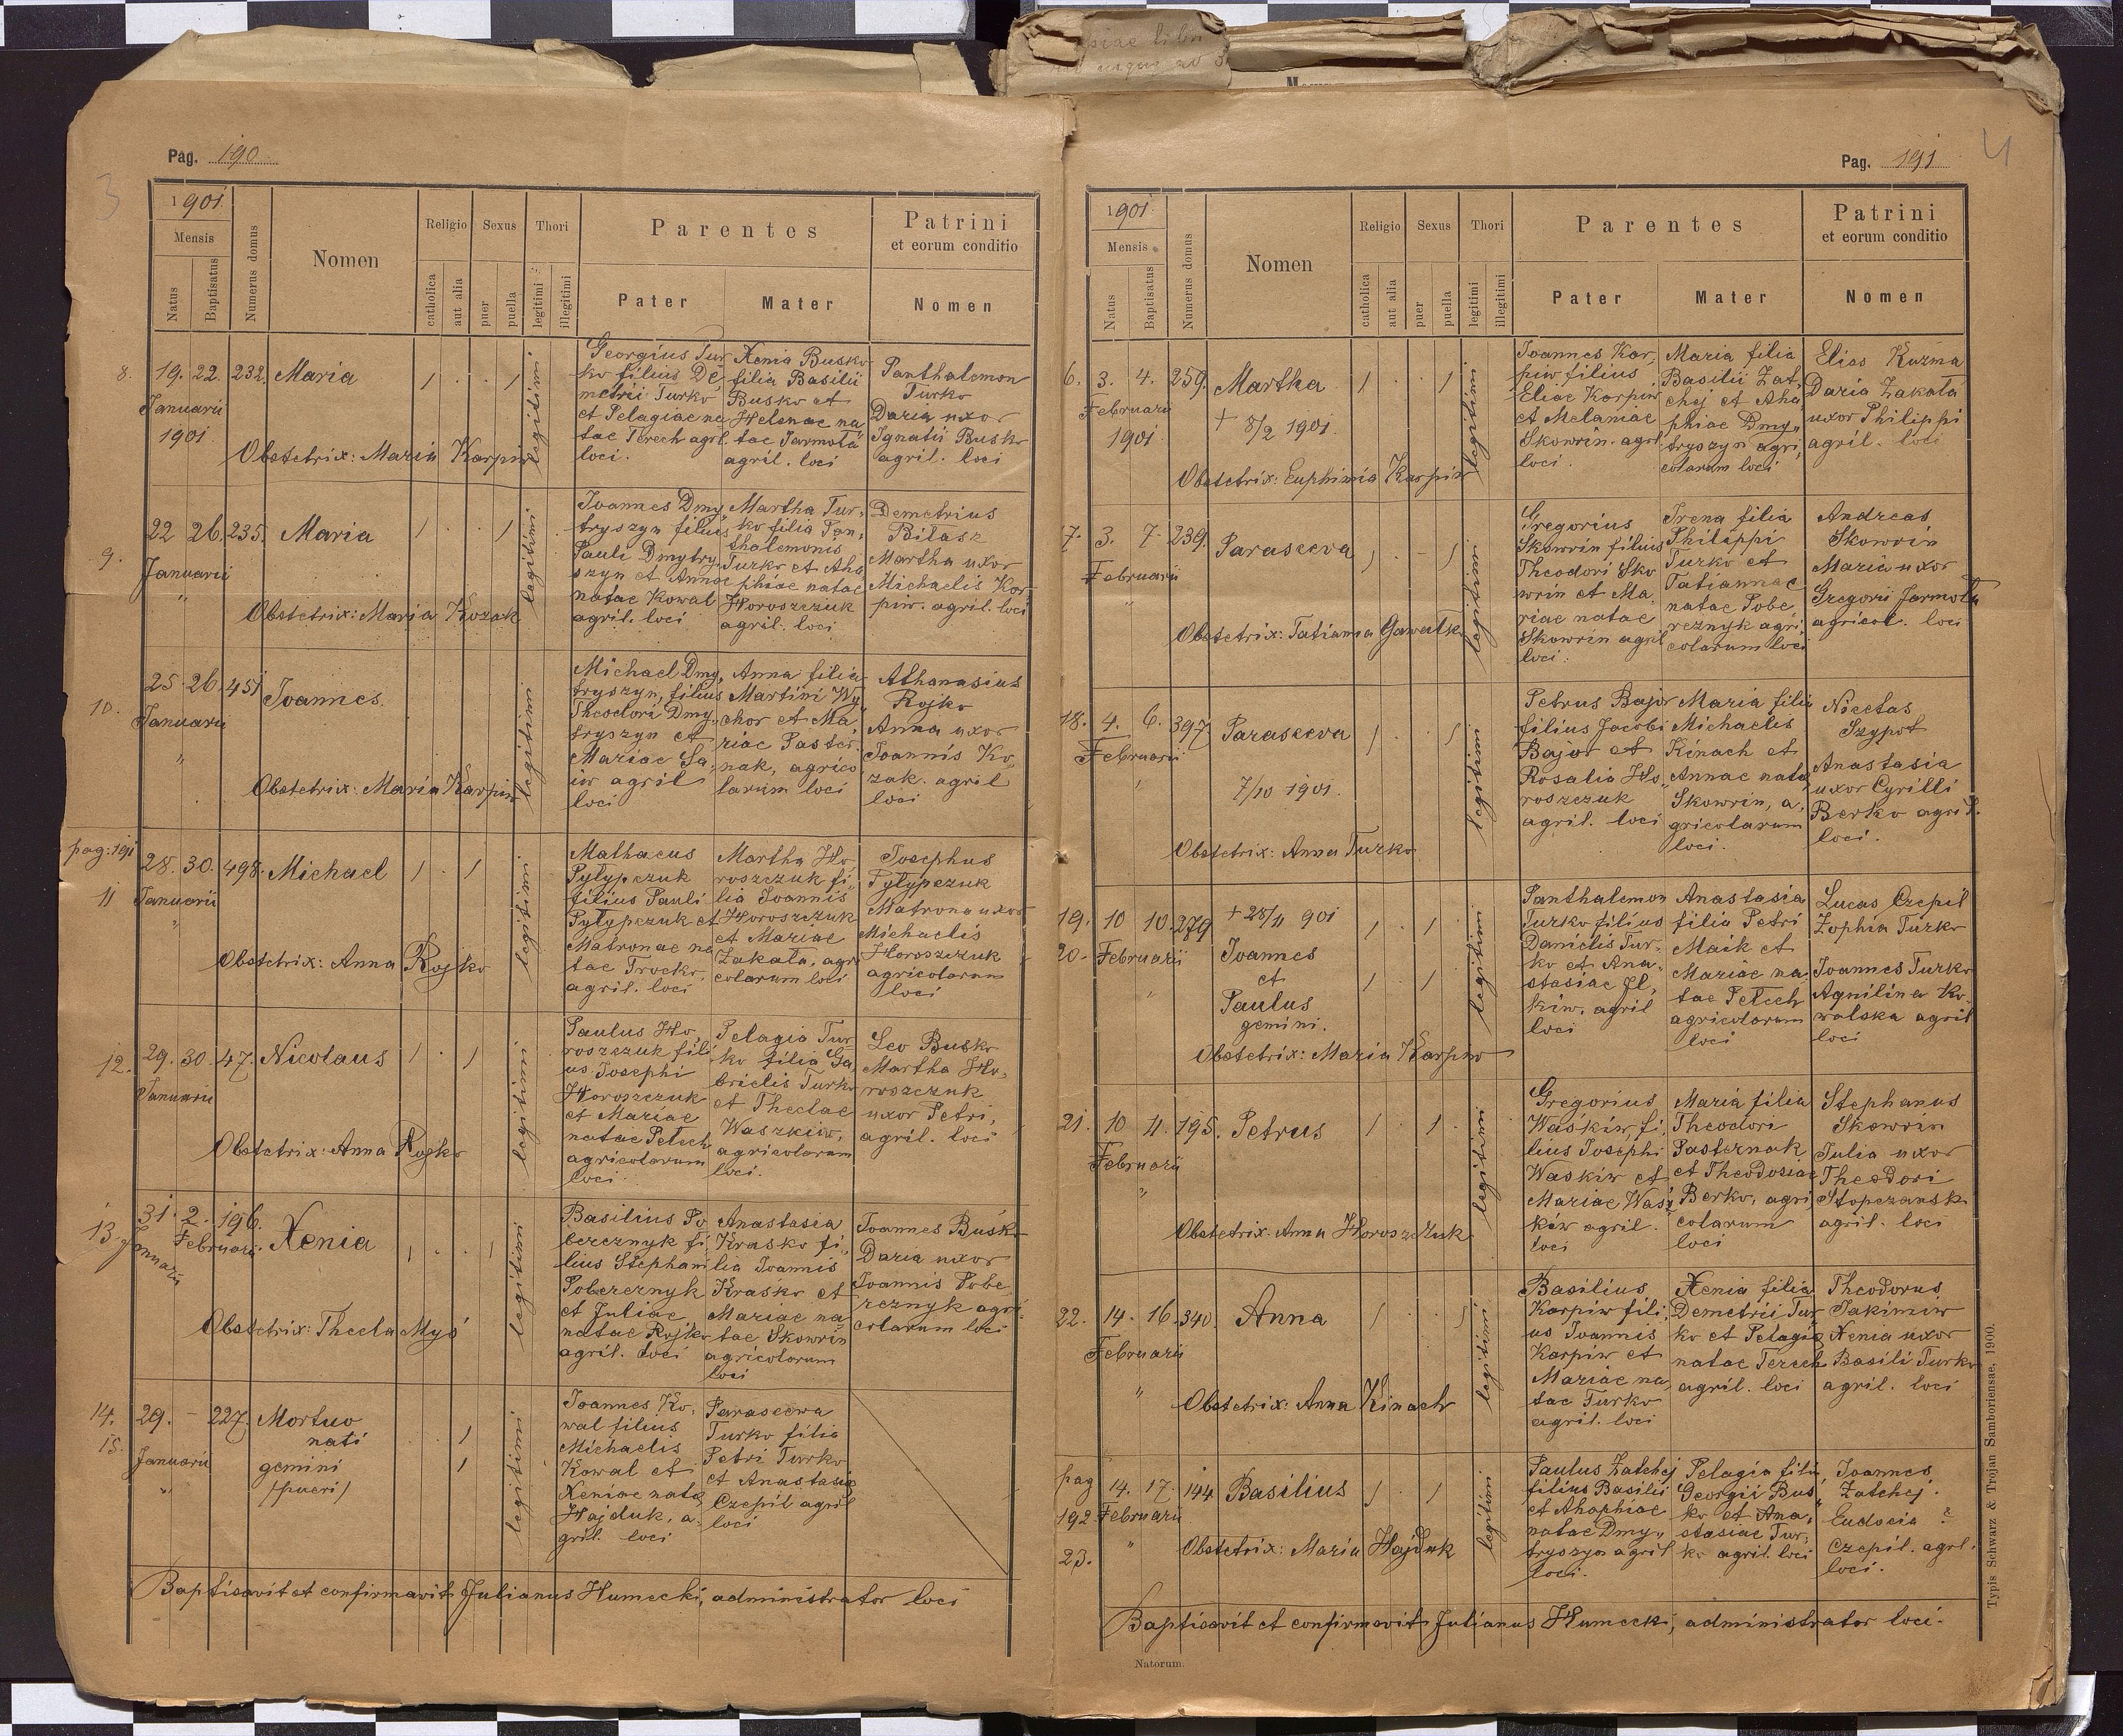 Pag. 190
3
1901.
Mensis
Natus
Baptisatus
Numerus domus
Nomen
Religio
catholica
aut alia
Sexus
puer
puella
Thori
legitimi
illegitimi
Parentes
Pater
Mater
Patrini
et eorum conditio
Nomen
8. 19. 22. 232. Maria
Januarii
1901.
Obstetrix: Maria Karpiw
legitimi
Georgius Tur
ko filius De,
metrii Turko
et Pelagiae na
tae Terech agril.
loci.
Xenia Busko
filia Basilii
Busko et
Helenae na
tae Jarmoła
agril. loci
Panthalemon
Turko
Daria uxor
Ignatii Busko
agril. loci
9. 22 26. 235. Maria
Januarii
"
Obstetrix: Maria Kozak
legitimi
Joannes Dmy,
tryszyn filius
Pauli Dmytry,
szyn et Annae
natae Kowal
agril. loci
Martha Tur,
ko filia Pan,
thalemonis
Turko et Aha
phiae natae
Horoszczuk
agril. loci
Demetrius
Bilasz
Martha uxor
Michaelis Kar
piw. agril. loci
10. 25 26. 451 Joannes.
Januarii
"
Obstetrix: Maria Karpiw
legitimi
Michael Dmy,
tryszyn, filius
Theodori Dmy,
tryszyn et
Mariae Sa,
iw agril
loci
Anna filia
Martini Wy,
chor et Ma,
riae Paster,
nak, agrico
larum loci
Athanasius
Rojko
Anna uxor
Joannis Ko,
zak. agril
loci
pag: 191
11 28. 30. 498. Michael
Januarii
"
Obstetrix: Anna Rojko
legitimi
Mathaeus
Pyłypczuk
filius Pauli
Pyłypczuk et
Matronae na
tae Trocko,
agril. loci
Martha Ho
roszczuk fi,
lia Joannis
Horoszczuk
et Mariae
Zakała, agri
colarum loci
Josephus
Pyłypczuk
Matrona uxor
Michaelis
Horoszczuk
agricolarum
loci
12. 29. 30. 47. Nicolaus
Januarii
Obstetrix: Anna Rojko
legitimi
Paulus Ho,
roszczuk fili
us Josephi
Horoszczuk
et Mariae
natae Petech
agricolarum
loci
Pelagia Tur
ko filia Ga
brielis Turko
et Theclae
Waszkiw,
agricolarum
loci.
Leo Busko
Martha Ho,
roszczuk
uxor Petri,
agril. loci
13. 31. 2. 196. Xenia
Januarii Februarii.
Obstetrix: Thecla Myś
legitimi
Basilius Po
bereznyk fi,
lius Stephani
Poberezny​k
et Juliae
natae Rojko
agril. loci
Anastasia
Krasko fi,
lia Joannis
Krasko et
Mariae na
tae Skowrin
agricolorum
loci
Joannes Busko
Daria uxor
Joannis Pobe
reznyk agri
colarum loci
14. 29. - 227. Mortuo
15. nati
Januarii gemini
" /pueri/
legitimi
Joannes Ko,
wal filius
Michaelis
Kowal et
Xeniae nata
Hajduk, a.
gril. loci
Parascewa
Turko filia
Petri Turko
et Anastasia
Czepil agril
loci
Baptisavit et confirmavit Julianus Humecki, administrator loci
Pag. 191
4
1901.
Mensis
Natus
Baptisatus
Numerus domus
Nomen
Religio
catholica
aut alia
Sexus
puer
puella
Thori
legitimi
illegitimi
Parentes
Pater
Mater
Patrini
et eorum conditio
Nomen
6. 3. 4. 259. Martha
Februarii
1901 + 8/2 1901.
Obstetrix: Euphimia Karpiw
legitimi
Joannes Kar,
piw filius
Eliae Karpiw
et Melaniae
Skowrin. agril.
loci.
Maria filia
Basilii Zat,
chej et Aha
phiae Dmy,
tryszyn agri,
colarum loci
Elias Kuzma
Daria Zakała
uxor Philippi
agril. loci
17. 3. 7. 239. Parasceva
Februarii
"
Obstetrix: Tatianna Gawałko
legitimi
Gregorius
Skowrin filius
Theodori Sko
wrin et Ma,
riae natae
Skowrin agril
loci.
Irena filia
Philippi
Turko et
Tatiannae
natae Pobe
reznyk agri,
colarum loci
Andreas
Skowrin
Maria uxor
Gregorii Jarmoła
agricol. loci
18. 4. 6. 397. Parasceva
Februarii
" 7/10 1901.
Obstetrix: Anna Turko
legitimi
Petrus Bajor
filius Jacobi
Bajor et
Rosalia Ho,
roszczuk
agril. loci
Maria filia
Michaelis
Kinach et
Annae nata
Skowrin, a,
gricolarum
loci.
Nicetas
Szypot
Anastasia
uxor Cyrilli
Berko agril.
loci.
19. 10 10. 279. + 28/11 901
20. Februarii Joannes
" et
Paulus
gemini.
Obstetrix: Maria Karpiw
legitimi
Panthalemon
Turko filius
Danielis Tur,
ko et Ana,
stasiae Jl,
kiw, agril
loci
Anastasia
filia Petri
Maik et
Mariae na
tae Petech
agricolarum
loci
Lucas Czepil
Zophia Turko
Joannes Turko
Aquilina Ko
walska agril
loci
21. 10 11. 195. Petrus
Februarii
"
Obstetrix: Anna Horoszczuk
legitimi
Gregorius
Waśkiw fi,
lius Josephi
Waśkiw et
Mariae Waś,
kiw agril.
loci
Maria filia
Theodori
Pasternak
et Theodosiae
Berko, agri,
colarum
loci
Stephanus
Skowrin
Julia uxor
Theodori
Stopczansk
agril. loci
22. 14. 16. 340. Anna
Februarii
"
Obstetrix: Anna Kinach
legitimi
Basilius
Karpiw fili,
us Joannis
Karpiw et
Mariae na,
tae Turko
agril. loci
Xenia filia
Demetrii Tur
ko et Pelagia
natae Terech
agril. loci
Theodorus
Jakimiw
Xenia uxor
Basili Turko
agril. loci
pag
192. 14. 17. 144. Basilius
Februarii
23. "
Obstetrix: Maria Hajduk
legitimi
Paulus Zatchej
filius Basilii
et Ahaphiae
natae Dmy,,
tryszyn agril
loci.
Pelagia filia
Georgii Bus,
ko et Ana,
stasiae Tur,
ko agril. loci
Joannes
Zatchej.
Eudocia ?
Czepil. agrl.
loci.
Baptisavit et confirmavit Julianus Humecki, administrator loci.
Natorum.
Typis Schwarz & Trojan Samboriensae, 1900.